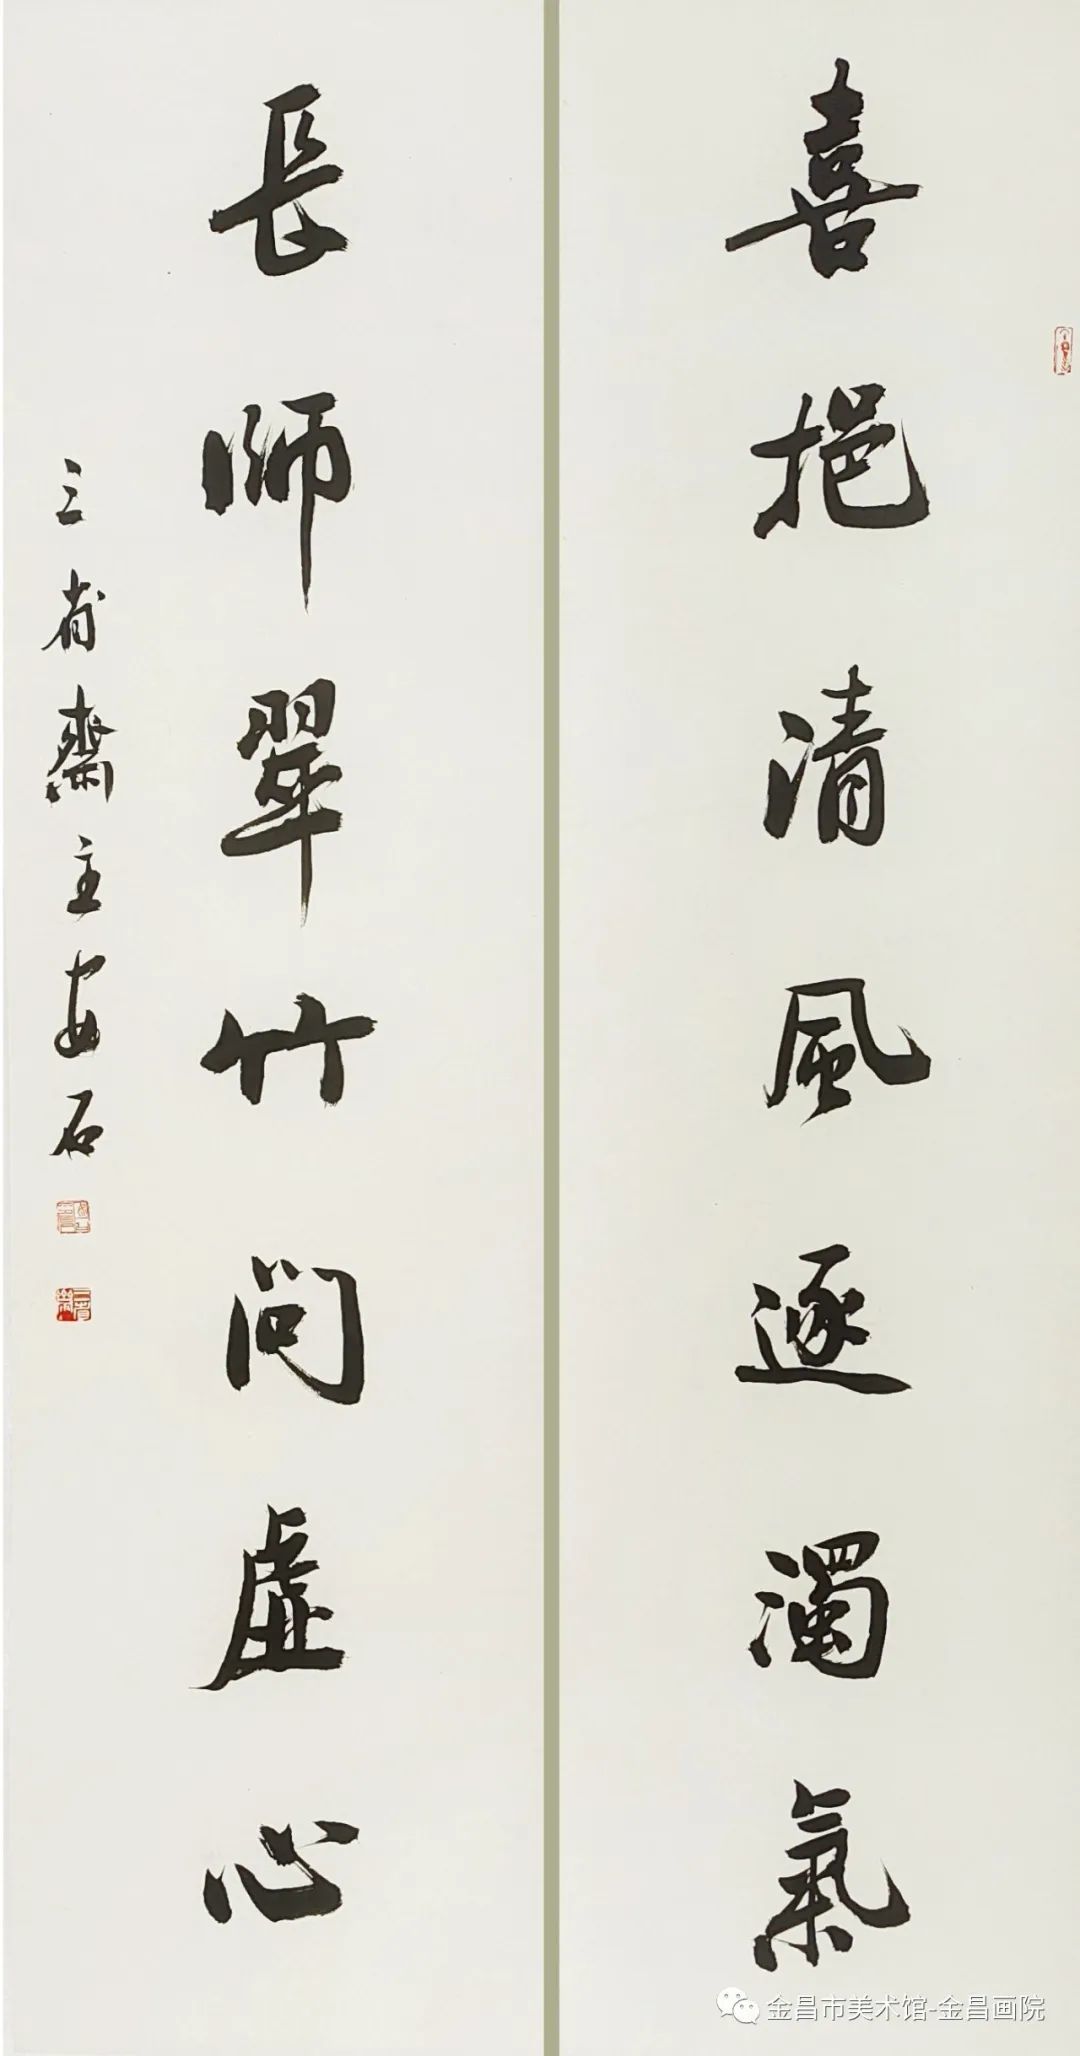 喜挹清風逐濁氣
長師翠竹問虛心
三省齋主安石
金昌市美术馆-金昌画院